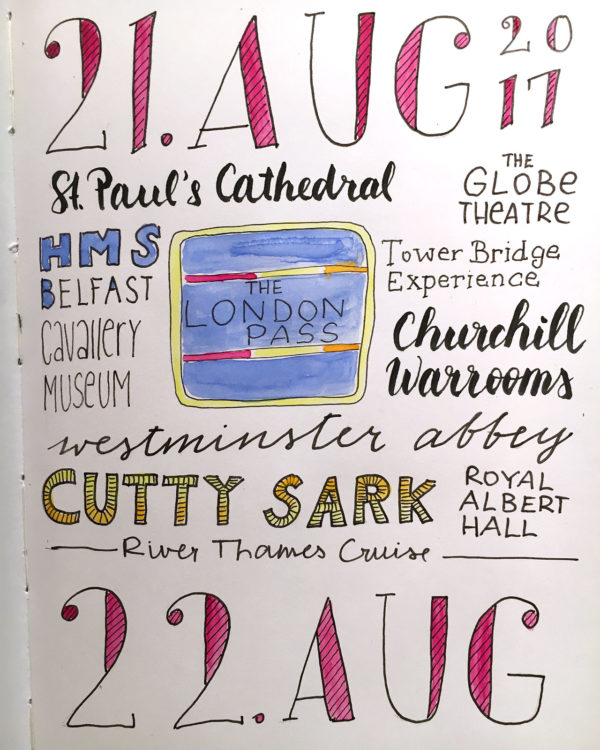 21. AUG 20
17
St. Paul's Cathedral
THE
GLOBE
THEATRE
HMS
BELFAST
Cavallery
MUSEUM
THE
LONDON
PASS
Tower Bridge
Experience
Churchill
Warrooms
westminster abbey
CUTTY SARK
ROYAL
ALBERT
HALL
River Thames Cruise
22. AUG